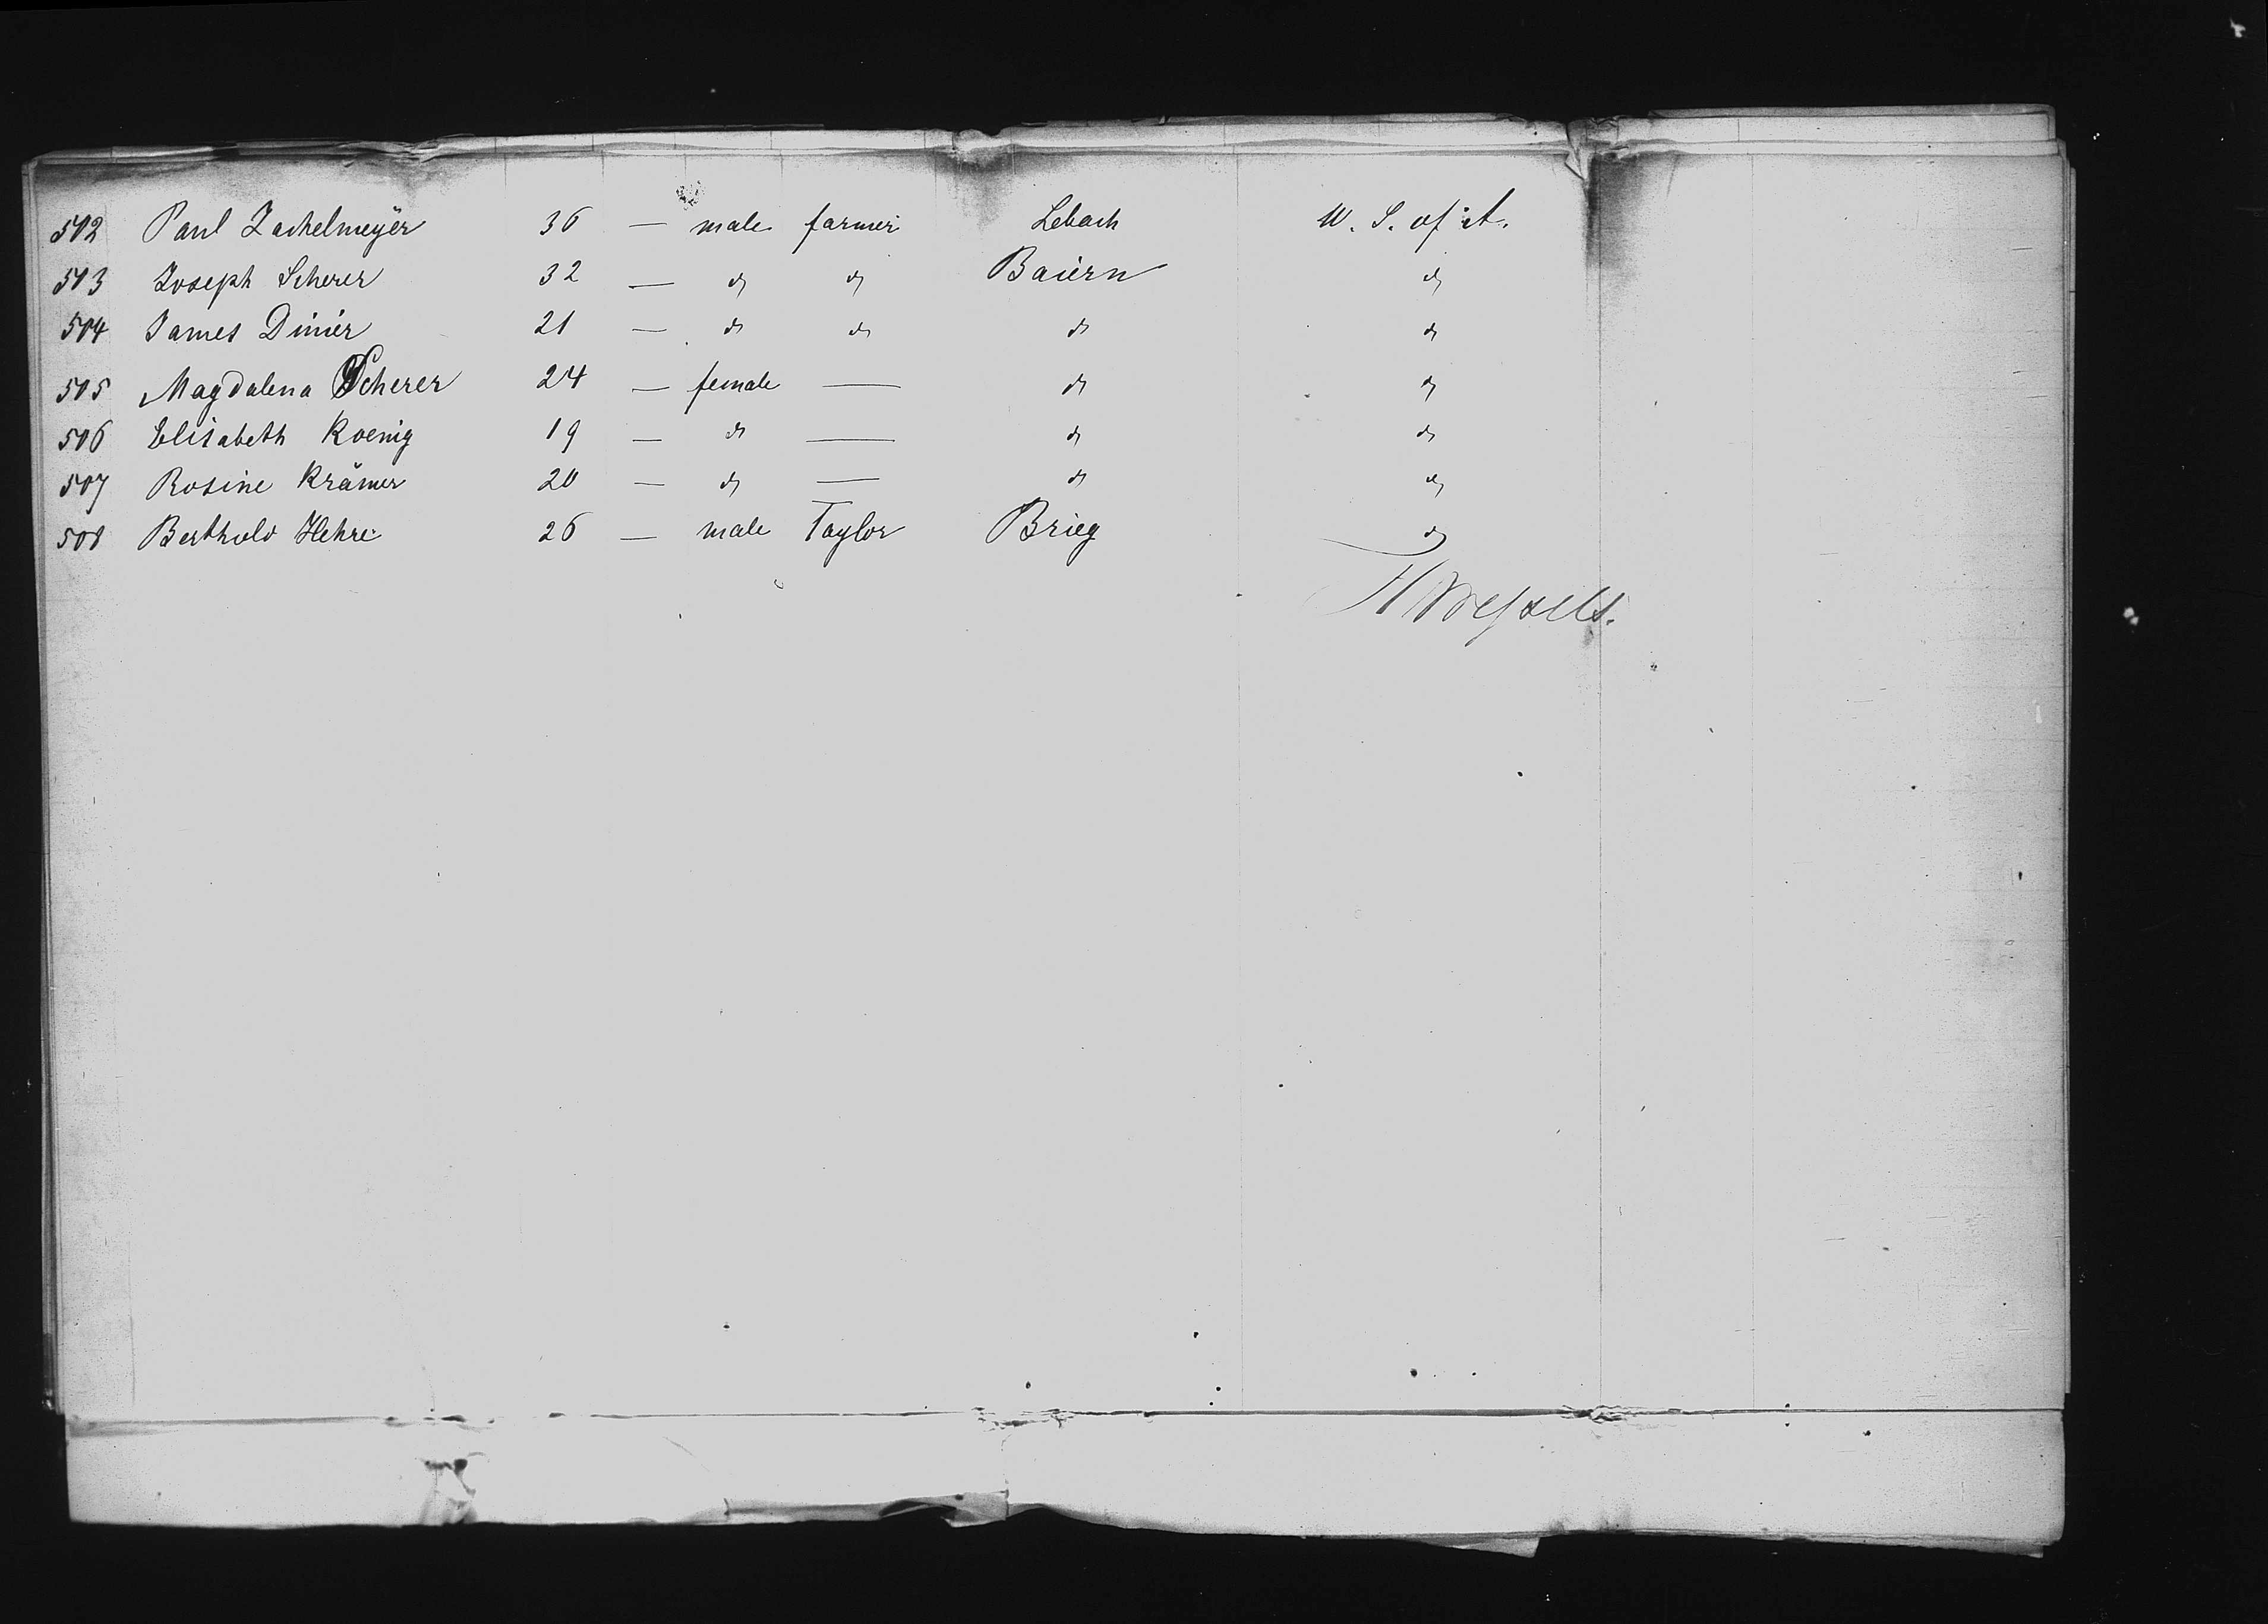 502 Paul Zachelmeyer 36 — male farmer Lebach U. S. of A.
503 Joseph Scherer 32 — do do Baiern do
504 James Dinier 21 — do do do do
505 Magdalena Scherer 24 — female — do do
506 Elisabeth Koenig 19 — do — do do
507 Rosine Krämer 20 — do — do do
508 Berthold Hehre 26 — male Taylor Brieg do
H Wessels.